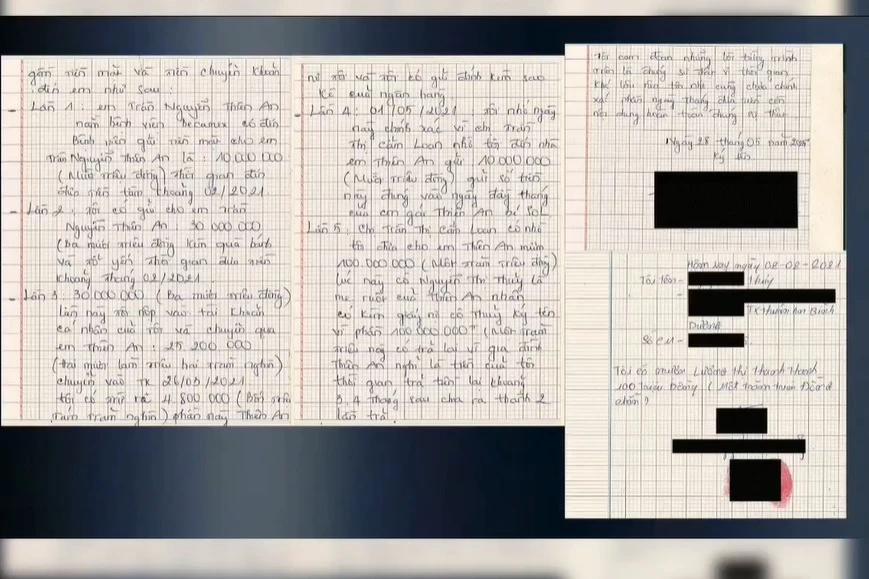 gồm tiền mặt và tiền chuyển khoản
đến em như sau:
- Lần 1: em Trần Nguyễn Thiên An
nằm bệnh viện becamex có đến
bệnh viện gửi tiền mặt cho em
Trần Nguyễn Thiên An là: 10.000.000
(Mười triệu đồng) thời gian đó
đưa tiền tầm khoảng 02/2021.
- Lần 2: Tôi có gửi cho em Trần
Nguyễn Thiên An: 30.000.000
(ba mươi triệu đồng
và thời gian đưa tiền
khoảng tháng 02/2021.
- Lần 3: 30.000.000 (Ba mươi triệu đồng)
lần này tôi nộp vào tài khoản
cá nhân của tôi và chuyển qua
em Thiên An: 25 200 000
(hai mươi lăm triệu hai trăm nghìn)
chuyển vào TK 26/03/2021
tôi có 4.800 000 (Bốn triệu
tám trăm nghìn) phần này Thiên An
nợ tôi và tôi có gửi đính kèm sao
kê của ngân hàng.
- Lần 4: 01/05/2021 tôi nhớ ngày
này chính xác vì chị Trần
Thị Cẩm Loan nhờ tôi đến nhà
em Thiên An gửi 10.000.000
(Mười triệu đồng) gửi số tiền
này đúng vào ngày đầy tháng
của em gái Thiên An bé SOL
Lần 5: Chị Trần Thị Cẩm Loan có nhờ
tôi đưa cho em Thiên An mượn
100.000.000 (Một trăm triệu đồng)
lúc này có Nguyễn Thị Thủy là
mẹ ruột của Thiên An nhận
có kèm giấy nợ có Thủy ký tên
vì phần 100.000.000 (Một trăm
triệu này có trả lại vì gia đình
Thiên An nghĩ là tiền của tôi
thời gian trả tiền lại khoảng
3, 4 tháng sau chia ra thành 2
lần trả.
Tôi cam đoan những lời tường trình
trên là đúng sự thật vì thời gian
khá lâu nên tôi nhớ cũng chưa chính
xác phần ngày tháng đưa tiền còn
nội dung hoàn toàn đúng sự thật
Ngày 28 tháng 05 năm 2025
Ký tên
Hôm nay ngày 08-08-2021
Tôi tên: Thủy
Dương
Số CM:
Tôi có mượn Lương thị thanh
100 Triệu Đồng (Một Trăm Triệu Đồng
chẵn)